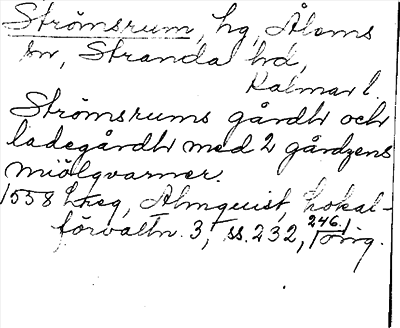 Strömsrum, hg, Ålems
sn, Stranda hd,
Kalmar l.
Strömsrums gårdh och
ladegårdh med 2 gårdzens
miölgvarner.
1558 Lheg, Almquist, Lokal-
förvaltn. 3, ss. 232, 246. orig.